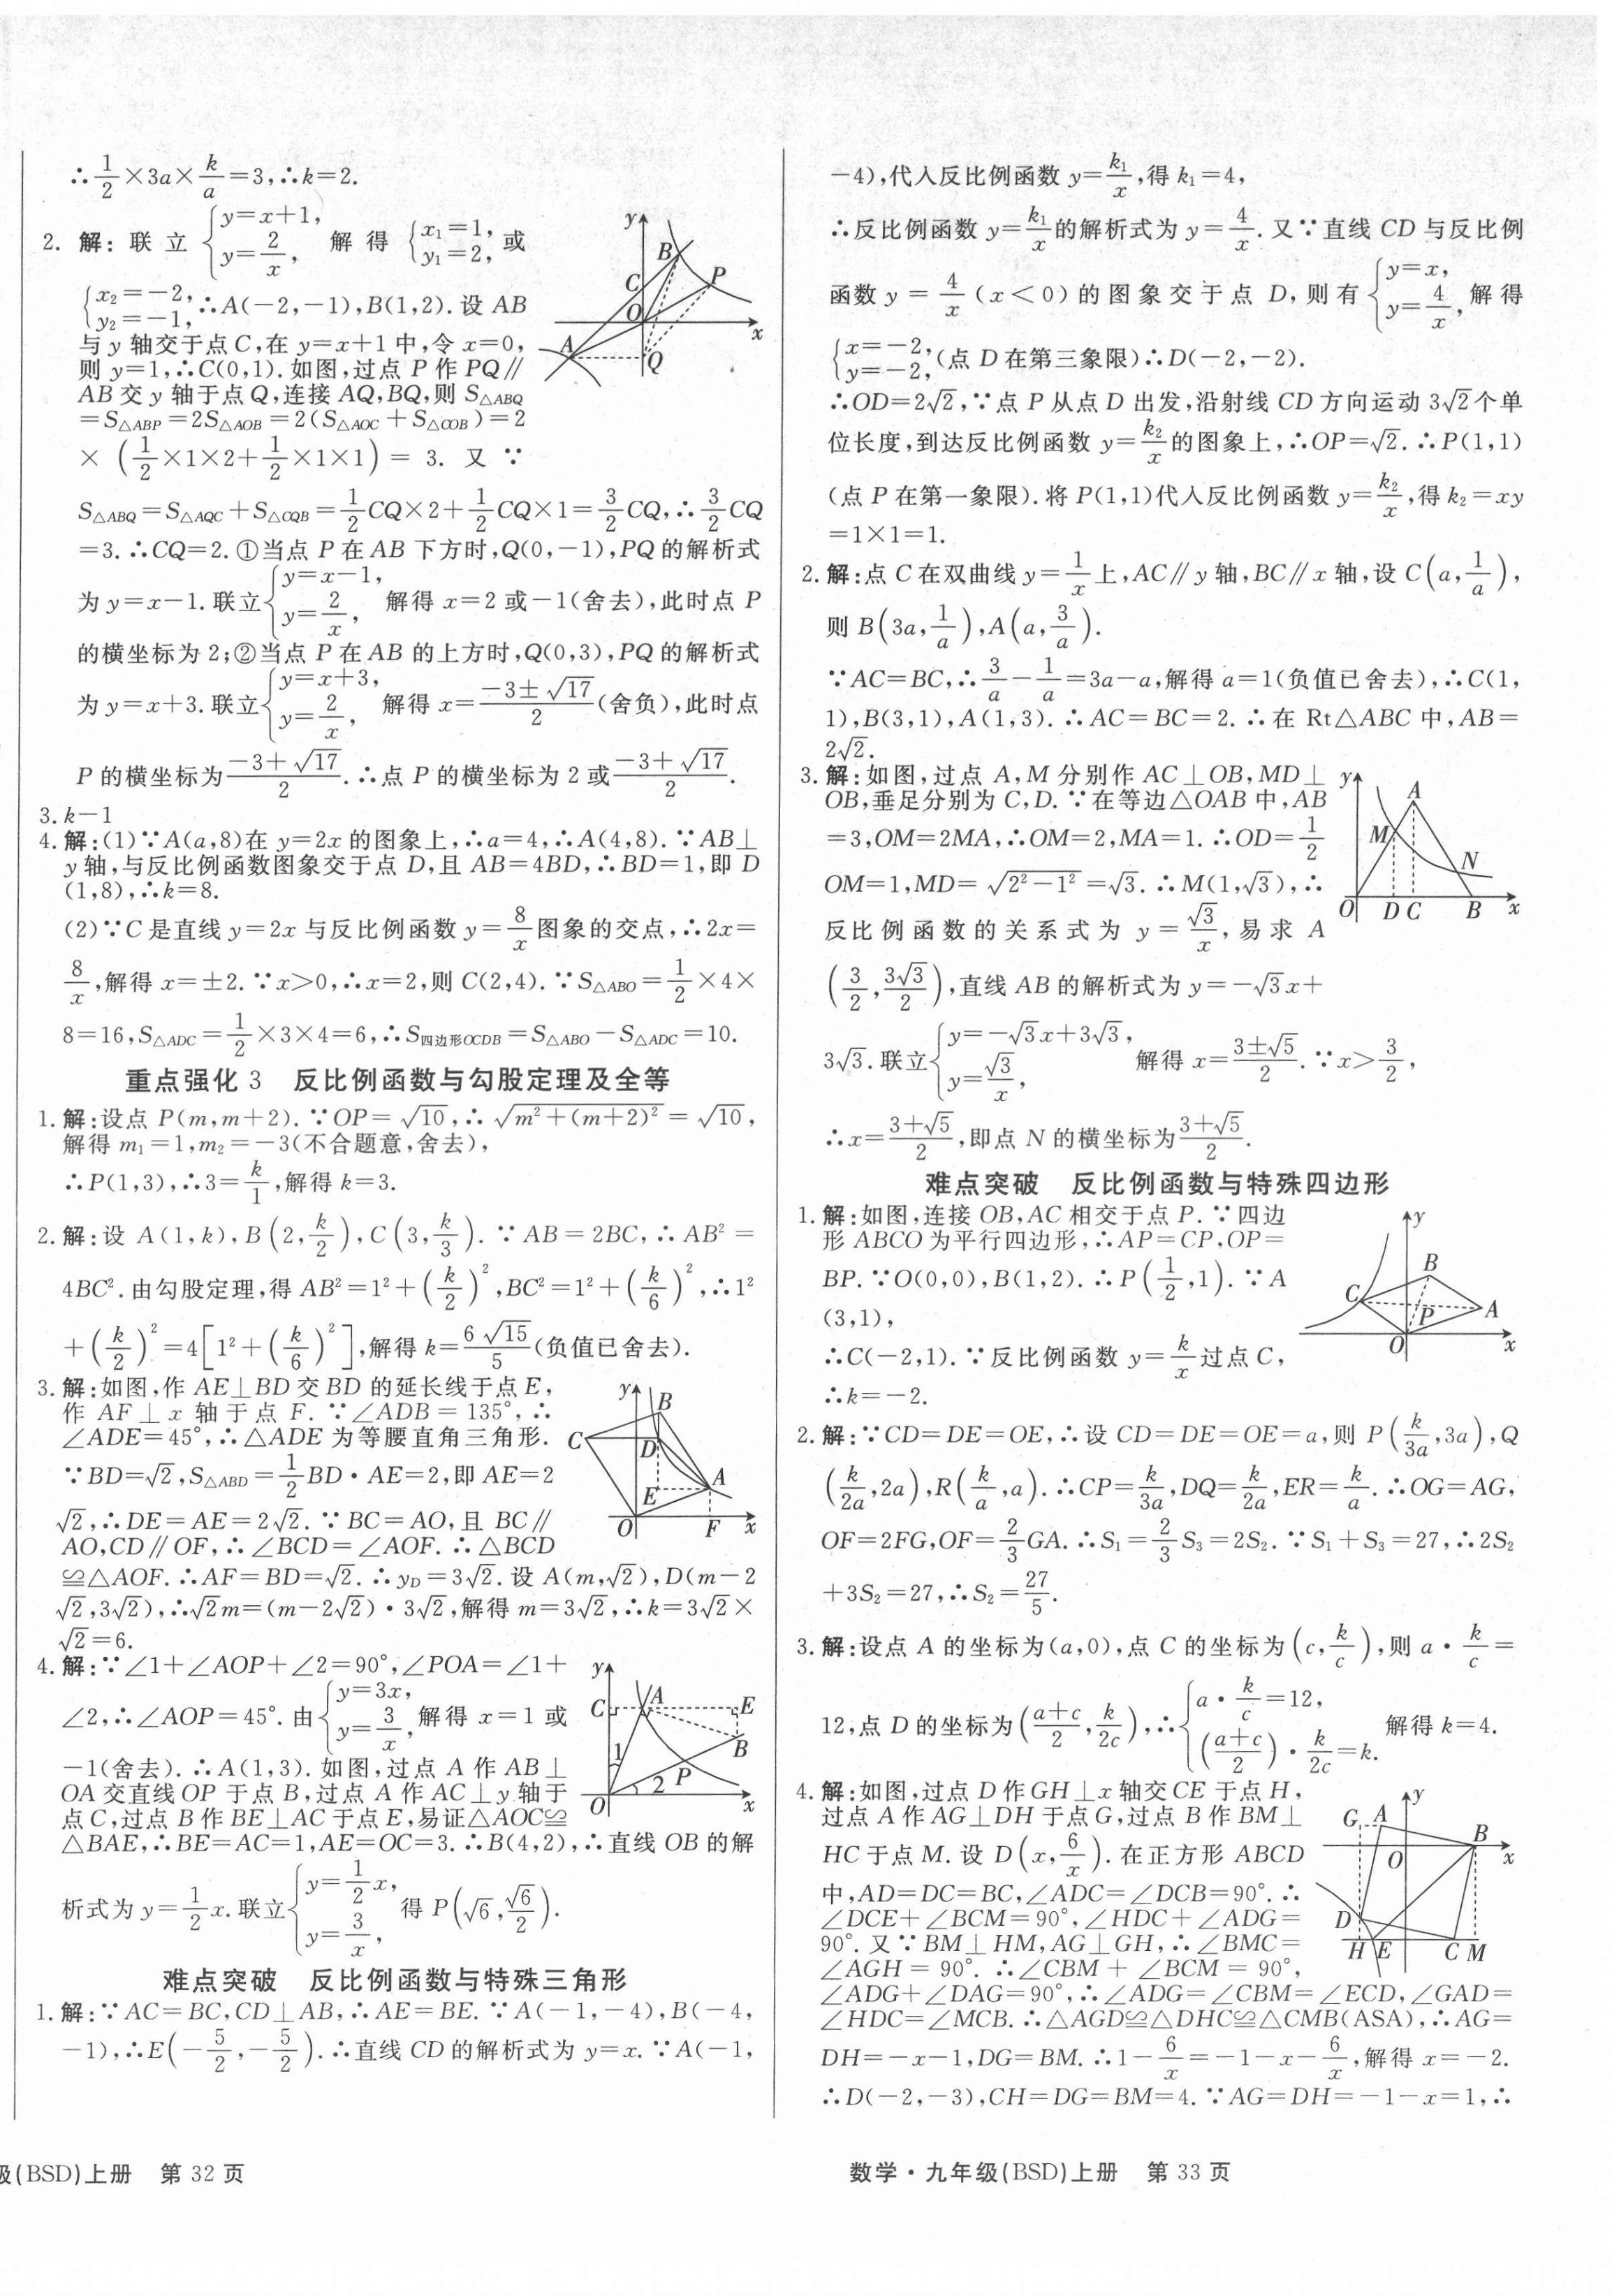 ∴1/2×3a×k/a=3,∴k=2.
2. 解: 联立 {y=x+1, y=2/x, 解得 {x₁=1, y₁=2, 或
{x₂=-2, y₂=-1, ∴A(-2,-1),B(1,2).设 AB
与 y 轴交于点 C,在 y=x+1 中,令 x=0,
则 y=1,∴C(0,1).如图,过点 P 作 PQ∥
AB 交 y 轴于点 Q,连接 AQ,BQ,则 S△ABQ
=S△ABP=2S△AOB=2(S△AOC+S△COB)=2
×(1/2×1×2+1/2×1×1)=3. 又∵
S△ABQ=S△AQC+S△CQB=1/2CQ×2+1/2CQ×1=3/2CQ,∴3/2CQ
=3.∴CQ=2.①当点 P 在 AB 下方时,Q(0,-1),PQ 的解析式
为 y=x-1.联立{y=x-1, y=2/x, 解得 x=2 或-1(舍去),此时点 P
的横坐标为 2;②当点 P 在 AB 的上方时,Q(0,3),PQ 的解析式
为 y=x+3.联立{y=x+3, y=2/x, 解得 x=(-3±√17)/2(舍负),此时点
P 的横坐标为(-3+√17)/2.∴点 P 的横坐标为 2 或(-3+√17)/2.
y
B
P
C
O
x
A
Q
3.k-1
4.解:(1)∵A(a,8)在 y=2x 的图象上,∴a=4,∴A(4,8).∵AB⊥
y 轴,与反比例函数图象交于点 D,且 AB=4BD,∴BD=1,即 D
(1,8),∴k=8.
(2)∵C 是直线 y=2x 与反比例函数 y=8/x图象的交点,∴2x=
8/x,解得 x=±2.∵x>0,∴x=2,则 C(2,4).∵S△ABO=1/2×4×
8=16,S△ADC=1/2×3×4=6,∴S四边形OCDB=S△ABO-S△ADC=10.
重点强化 3 反比例函数与勾股定理及全等
1.解:设点 P(m,m+2).∵OP=√10,∴√(m²+(m+2)²)=√10,
解得 m₁=1,m₂=-3(不合题意,舍去),
∴P(1,3),∴3=k/1,解得 k=3.
2.解:设 A(1,k),B(2,k/2),C(3,k/3).∵AB=2BC,∴AB²=
4BC².由勾股定理,得 AB²=1²+(k/2)²,BC²=1²+(k/6)²,∴1²
+(k/2)²=4[1²+(k/6)²],解得 k=6√15/5(负值已舍去).
3.解:如图,作 AE⊥BD 交 BD 的延长线于点 E,
作 AF⊥x 轴于点 F.∵∠ADB=135°,∴
∠ADE=45°,∴△ADE 为等腰直角三角形.
∵BD=√2,S△ABD=1/2BD·AE=2,即 AE=2
√2,∴DE=AE=2√2.∵BC=AO,且 BC∥
AO,CD∥OF,∴∠BCD=∠AOF.∴△BCD
≌△AOF.∴AF=BD=√2.∴y_D=3√2.设 A(m,√2),D(m-2
√2,3√2),∴√2m=(m-2√2)·3√2,解得 m=3√2,∴k=3√2×
√2=6.
y
B
C
D
A
E
O
F
x
4.解:∵∠1+∠AOP+∠2=90°,∠POA=∠1+
∠2,∴∠AOP=45°.由{y=3x, y=3/x, 解得 x=1 或
-1(舍去).∴A(1,3).如图,过点 A 作 AB⊥
OA 交直线 OP 于点 B,过点 A 作 AC⊥y 轴于
点 C,过点 B 作 BE⊥AC 于点 E,易证△AOC≌
△BAE,∴BE=AC=1,AE=OC=3.∴B(4,2),∴直线 OB 的解
析式为 y=1/2x.联立{y=1/2x, y=3/x, 得 P(√6,√6/2).
y
C
A
E
B
1
2
P
O
x
难点突破 反比例函数与特殊三角形
1.解:∵AC=BC,CD⊥AB,∴AE=BE.∵A(-1,-4),B(-4,
-1),∴E(-5/2,-5/2).∴直线 CD 的解析式为 y=x.∵A(-1,
级(BSD)上册 第 32 页
-4),代入反比例函数 y=k₁/x,得 k₁=4,
∴反比例函数 y=k₁/x的解析式为 y=4/x.又∵直线 CD 与反比例
函数 y=4/x(x<0)的图象交于点 D,则有{y=x, y=4/x, 解得
{x=-2, y=-2, (点 D 在第三象限)∴D(-2,-2).
∴OD=2√2,∵点 P 从点 D 出发,沿射线 CD 方向运动 3√2个单
位长度,到达反比例函数 y=k₂/x的图象上,∴OP=√2.∴P(1,1)
(点 P 在第一象限).将 P(1,1)代入反比例函数 y=k₂/x,得 k₂=xy
=1×1=1.
2.解:点 C 在双曲线 y=1/x上,AC∥y 轴,BC∥x 轴,设 C(a,1/a),
则 B(3a,1/a),A(a,3/a).
∵AC=BC,∴3/a-1/a=3a-a,解得 a=1(负值已舍去),∴C(1,
1),B(3,1),A(1,3).∴AC=BC=2.∴在 Rt△ABC 中,AB=
2√2.
3.解:如图,过点 A,M 分别作 AC⊥OB,MD⊥
OB,垂足分别为 C,D.∵在等边△OAB 中,AB
=3,OM=2MA,∴OM=2,MA=1.∴OD=1/2
OM=1,MD=√(2²-1²)=√3.∴M(1,√3),∴
反比例函数的关系式为 y=√3/x,易求 A
(3/2,3√3/2),直线 AB 的解析式为 y=-√3x+
3√3.联立{y=-√3x+3√3, y=√3/x, 解得 x=(3±√5)/2.∵x>3/2,
∴x=(3+√5)/2,即点 N 的横坐标为(3+√5)/2.
y
A
M
N
O
D
C
B
x
难点突破 反比例函数与特殊四边形
1.解:如图,连接 OB,AC 相交于点 P.∵四边
形 ABCO 为平行四边形,∴AP=CP,OP=
BP.∵O(0,0),B(1,2).∴P(1/2,1).∵A
(3,1),
∴C(-2,1).∵反比例函数 y=k/x过点 C,
∴k=-2.
y
B
C
P
A
O
x
2.解:∵CD=DE=OE,∴设 CD=DE=OE=a,则 P(k/3a,3a),Q
(k/2a,2a),R(k/a,a).∴CP=k/3a,DQ=k/2a,ER=k/a.∴OG=AG,
OF=2FG,OF=2/3GA.∴S₁=2/3S₃=2S₂.∵S₁+S₃=27,∴2S₂
+3S₂=27,∴S₂=27/5.
3.解:设点 A 的坐标为(a,0),点 C 的坐标为(c,k/c),则 a·k/c=
12,点 D 的坐标为((a+c)/2,k/2c),∴{a·k/c=12, ((a+c)/2)·k/2c=k. 解得 k=4.
4.解:如图,过点 D 作 GH⊥x 轴交 CE 于点 H,
过点 A 作 AG⊥DH 于点 G,过点 B 作 BM⊥
HC 于点 M.设 D(x,6/x).在正方形 ABCD
中,AD=DC=BC,∠ADC=∠DCB=90°.∴
∠DCE+∠BCM=90°,∠HDC+∠ADG=
90°.又∵BM⊥HM,AG⊥GH,∴∠BMC=
∠AGH=90°.∴∠CBM+∠BCM=90°,
∠ADG+∠DAG=90°,∴∠ADG=∠CBM=∠ECD,∠GAD=
∠HDC=∠MCB.∴△AGD≌△DHC≌△CMB(ASA),∴AG=
DH=-x-1,DG=BM.∴1-6/x=-1-x-6/x,解得 x=-2.
∴D(-2,-3),CH=DG=BM=4.∵AG=DH=-1-x=1,∴
y
G
A
B
O
x
D
H
E
C
M
数学·九年级(BSD)上册 第 33 页